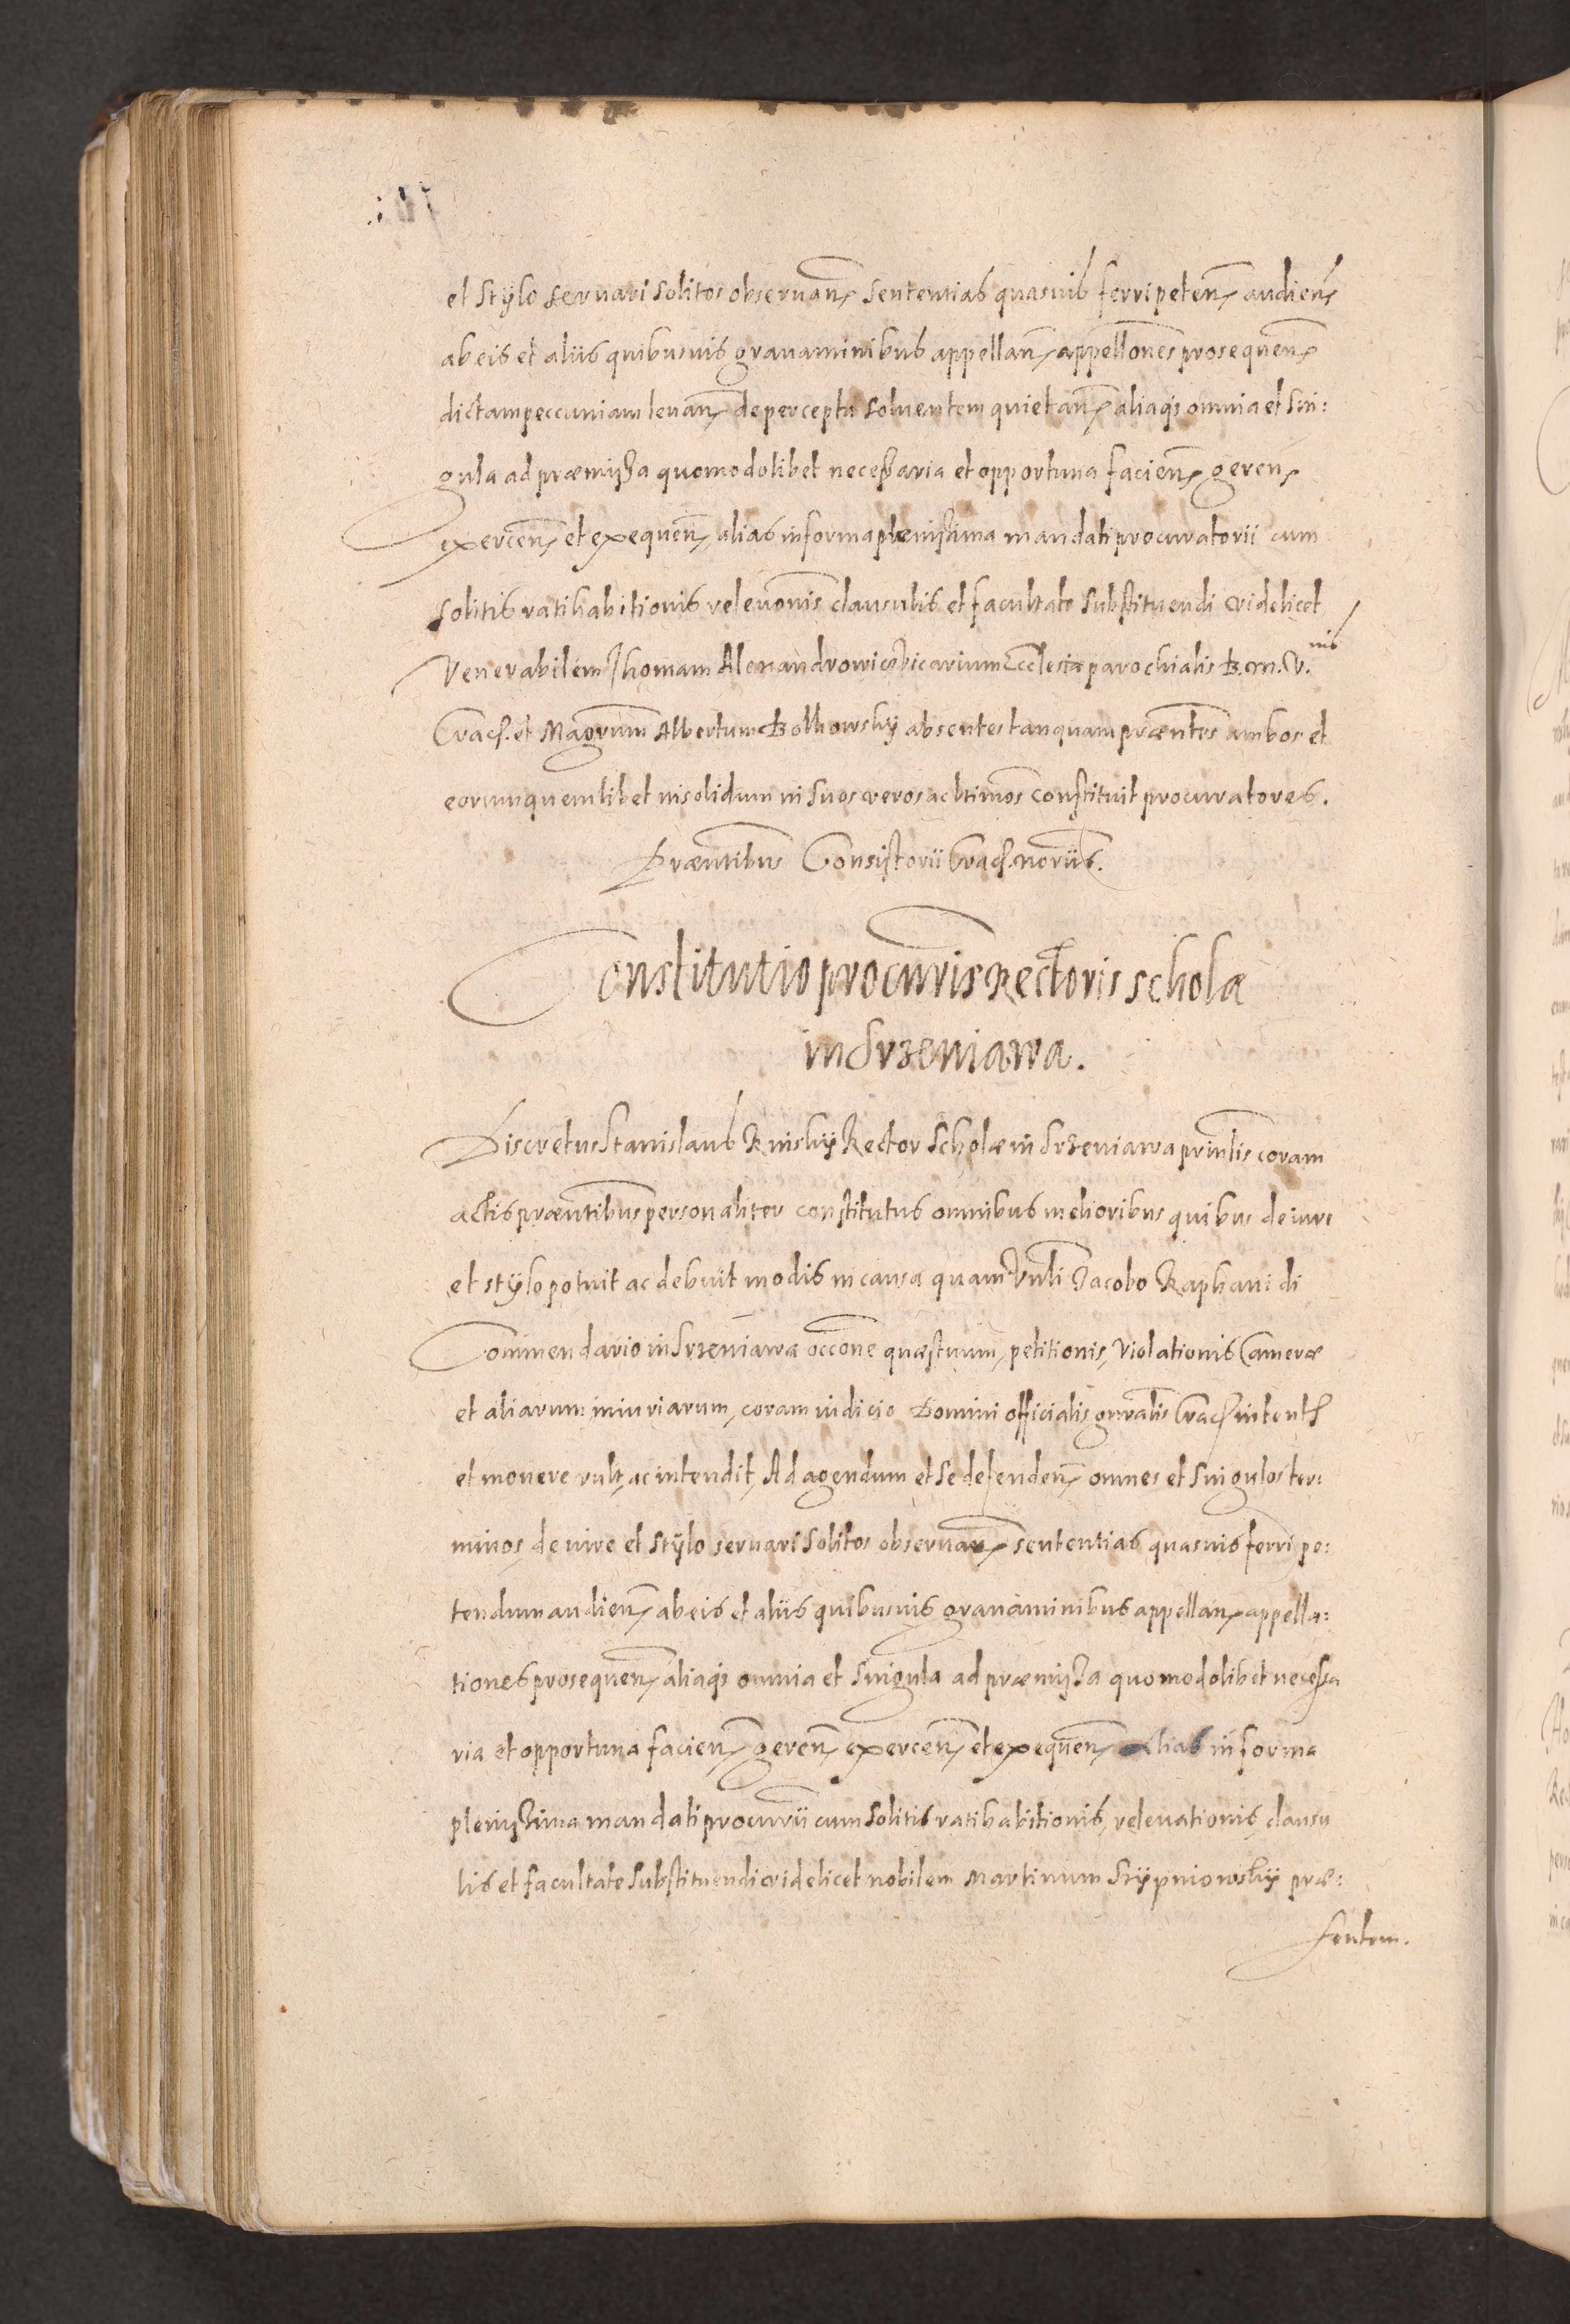 et stÿlo servari solitos observan͂ sententias quasvis ferri peten͂ audien͂
ab eis et aliis quibusvis gravaminibus appellan͂ appellones prosequen͂
dictam peccuniam levan͂ de percepta solventem quietan͂ aliaqȝ omnia et sin:
gula ad præmissa quomodolibet necessaria et opportuna facien͂ geren͂
exercen͂ et exequen͂, alias in forma plenissima mandati procuratorii cum
solitis ratihabitionis relevonis clausulis et facultate substituendi videlicet
Venerabilem Thomam Alexandrowicz vicarium Ecclesiæ parochialis B. M. V. nis
Crac. et Magrum Albertum Bolkowsky absentes tanquam præntes ambos et
eorum quemlibet in solidum in suos veros ac ltimos constituit procuratores.
Præntibus Consistorii Crac. noriis.
Constitutio procuris Rectoris scholæ
in Srzeniawa.
Discretus Stanislaus Rinsky Rector Scholæ in Srzeniawa prinlis coram
actis præntibus personaliter constitutus omnibus melioribus quibus de iure
et stÿlo potuit ac debuit modis in causa quam Vnli Jacobo Raphani di
Commendario in Srzeniawæ occone quæstuum, petitionis, violationis Cameræ
et aliarum iniuriarum, coram iudicio Domini officialis gnralis Crac
et movere vult, ac intendit, Ad agendum et se defenden͂ omnes et singulos ter:
minos de iure et stÿlo servari solitos observan͂ sententias quasvis ferri pe:
tendum audien͂ ab eis et aliis quibusvis gravaminibus appellan͂ appella:
tiones prosequen͂ aliaqȝ omnia et singula ad præmissa quomodolibet necessa
ria et opportuna facien͂ geren͂ exercen͂ et exequen͂ alias in forma
plenissima mandati procurii cum solitis ratihabitionis, relevationis, clausu
lis et facultate substituendi videlicet nobilem Martinum Szÿpniowskÿ præ:
sentem.